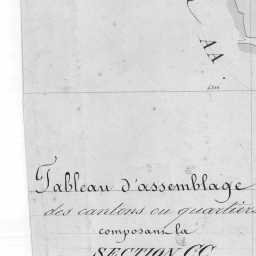 AA
Tableau d'assemblage
des cantons ou quartiers
composant la
SECTION CC